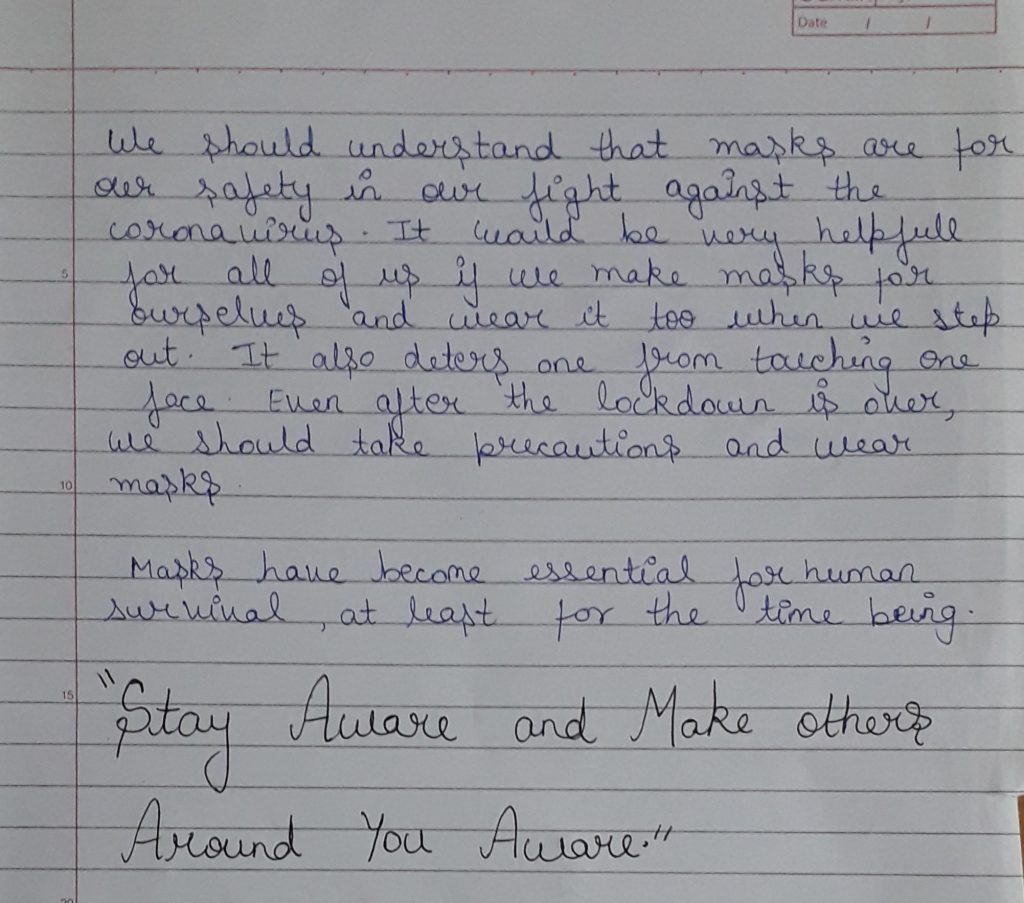 Date / /
We should understand that masks are for
our safety in our fight against the
coronavirus. It would be very helpfull
5 for all of us if we make masks for
ourselves and wear it too when we step
out. It also deters one from touching one
face. Even after the lockdown is over,
we should take precautions and wear
10 masks.
Masks have become essential for human
survival, at least for the time being.
15 "Stay Aware and Make others
Around You Aware."
20